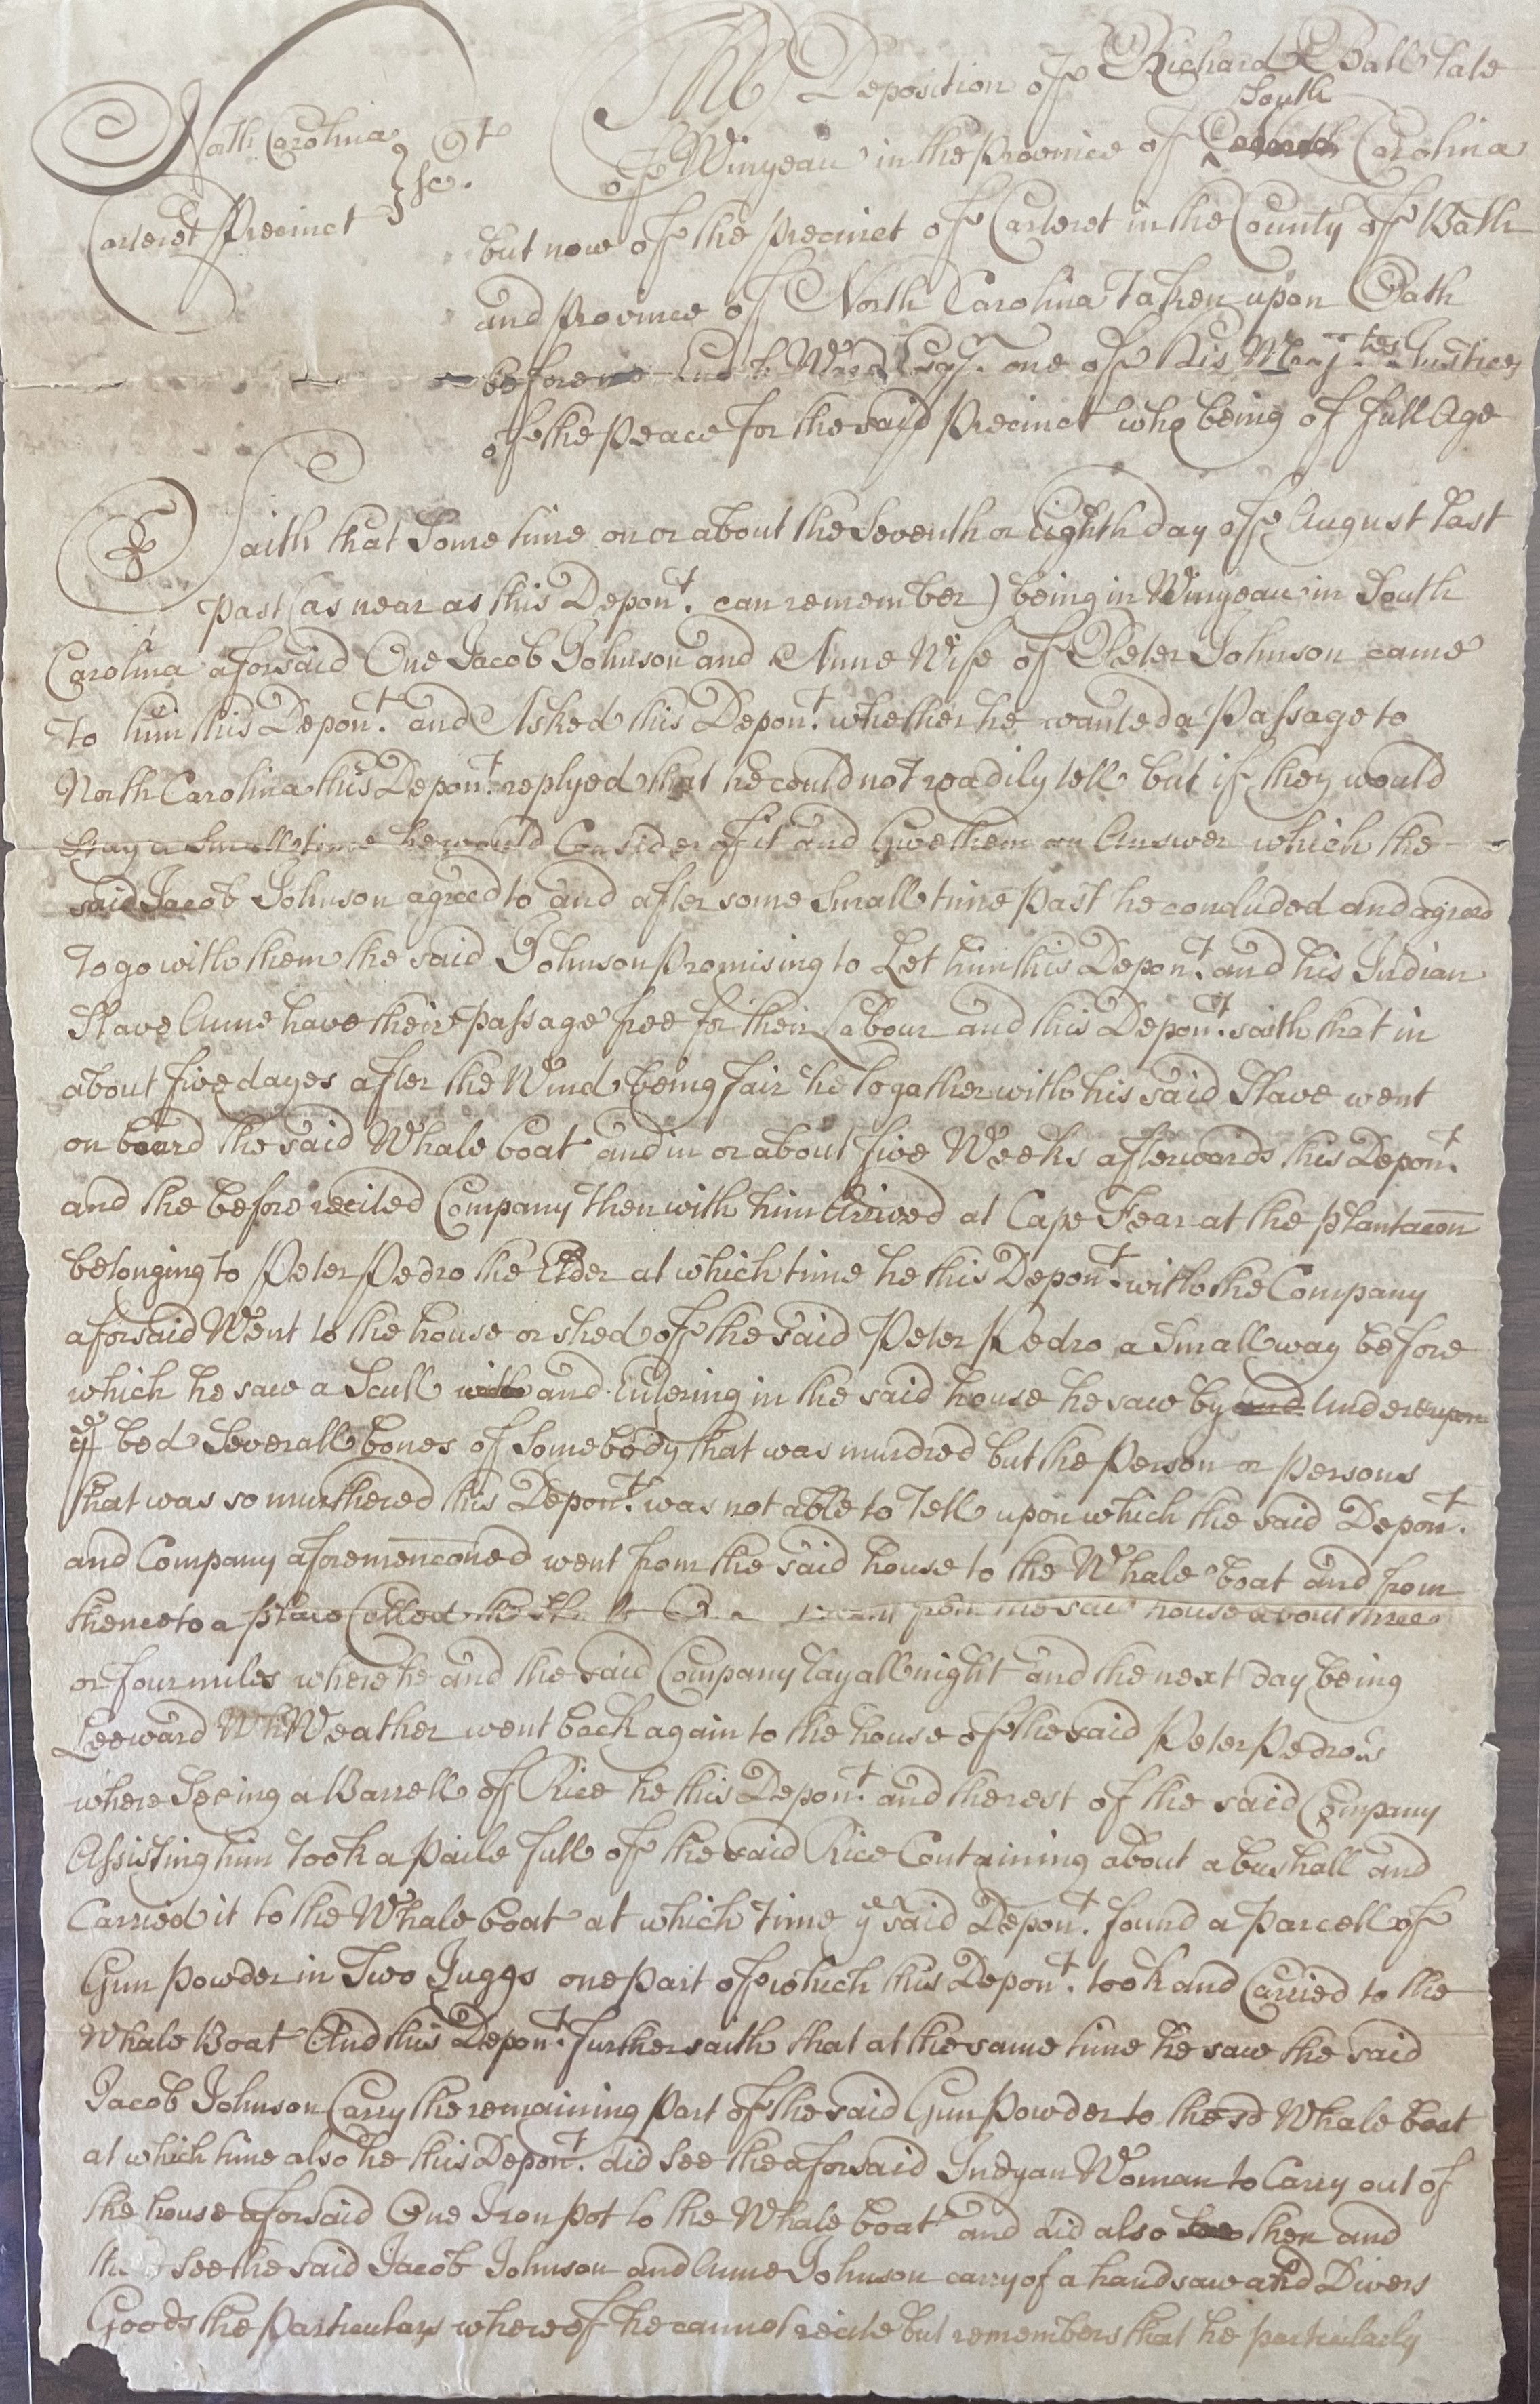 North Carolina
Carteret Precinct } sc.
The Deposition of Richard Ball late
of Wingeau in the Province of South Carolina
but now of the precinct of Carteret in the County of Bath
and province of North Carolina Taken upon Oath
before Ward Esqr. one of his Majtes Justices
of the peace for the said Precinct who being of full Age
Saith that Some time on or about the Seventh or Eighth day of August last
past (as near as this Depont. can remember) being in Wingeau in South
Carolina aforsaid One Jacob Johnson and Anne Wife of Peter Johnson came
To him this Depont. and Asked this Depont. whether he wanted a Passage to
North Carolina this Depont. replyed that he could not readily tell but if they would
Stay a Small time he would Consider of it and Give them an Answer which the
said Jacob Johnson agreed to and after some Small time past he concluded and agreed
To go with them the said Johnson promising to Let him this Depont. and his Indian
Slave Anne have their passage free for their Labour and this Depont. saith that in
about five dayes after the Wind being fair he togather with his said Slave went
on board the said Whale boat and in or about five Weeks afterwards this Depont.
and the before recited Company then with him Arrived at Cape Fear at the plantacon
belonging to Peter Pedro the Elder at which time he this Depont. with the Company
aforsaid Went to the house or shed of the said Peter Pedro a Small way before
which he saw a Scull with and Entering in the said house he saw by and Under
ye bed Severall bones of Somebody that was murdred but the person or persons
that was so murthered this Depont. was not able to Tell upon which the said Depont.
and Company aforemenconed went from the said house to the Whale boat and from
thence to a place Called the from the said house about three
or four miles where he and the said Company lay all night and the next day being
Leeward Weather went back again to the house of the said Peter Pedro's
where Seeing a Barrell of Rice he this Depont. and the rest of the said Company
Assisting him took a paile full of the said Rice Containing about a bushall and
Carried it to the Whale boat at which time ye said Depont. found a parcell of
Gun powder in Two Juggs one part of which this Depont. took and Carried to the
Whale Boat And this Depont. further saith that at the same time he saw the said
Jacob Johnson Carry the remaining part of the said Gun Powder to the sd Whale boat
at which time also he this Depont. did see the aforsaid Indyan Woman to Carry out of
the house aforsaid One Iron pot to the Whale boat and did also then and
see the said Jacob Johnson and Anne Johnson carry of a handsaw and Divers
Goods the particulars whereof he cannot recite but remembers that he particularly